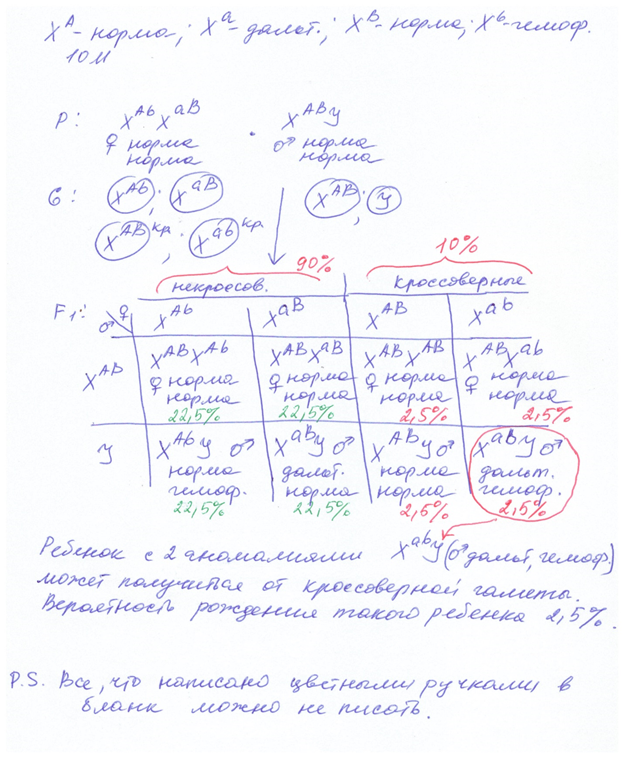 X^A - норма; X^a - дальт.; X^B - норма; X^b - гемоф.
10М
P: X^Ab X^aB · X^AB y
♀ норма ♂ норма
норма норма
G: X^Ab; X^aB X^AB; y
X^AB кр.; X^ab кр.
90% 10%
некроссов. кроссоверные
F1: ♂ ♀ X^Ab X^aB X^AB X^ab
X^AB X^AB X^Ab X^AB X^aB X^AB X^AB X^AB X^ab
♀ норма ♀ норма ♀ норма ♀ норма
норма норма норма норма
22,5% 22,5% 2,5% 2,5%
y X^Ab y ♂ X^aB y ♂ X^AB y ♂ X^aB y ♂
норма дальт. норма дальт.
гемоф. норма норма гемоф.
22,5% 22,5% 2,5% 2,5%
Ребенок с 2 аномалиями X^ab y (♂ дальт, гемоф.)
может получиться от кроссоверной гаметы.
Вероятность рождения такого ребенка 2,5%.
P.S. Все, что написано цветными ручками в
бланк можно не писать.